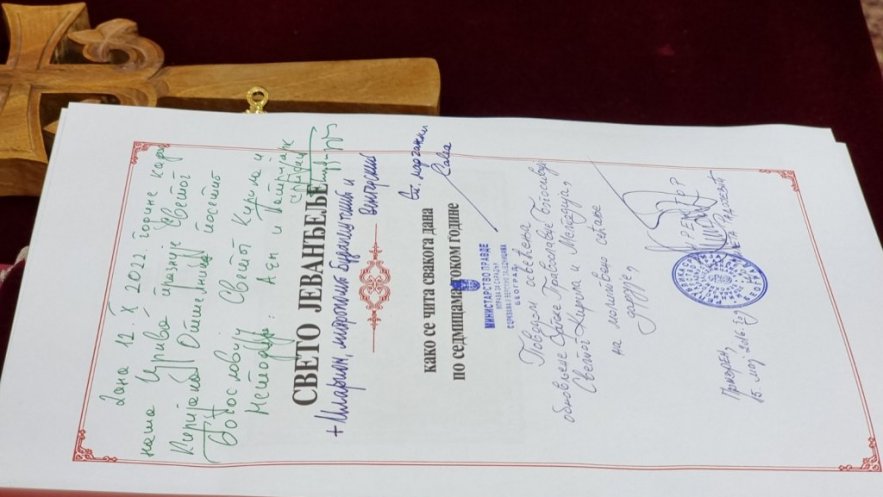 Дана 12. X 2022 године када
наша Црква празнује Светог
Киријака Отшелника посетио
Богословију Светог Кирила и
Методија: АЕМ и Патријарх
српски
СВЕТО ЈЕВАНЂЕЉЕ
+ Иларион, митрополит Будапештский и
Венгерский
како се чита свакога дана
по седмицама током године
Сава
МИНИСТАРСТВО ПРАВДЕ
УПРАВА ЗА САРАДЊУ
СА ЦРКВАМА И ВЕРСКИМ ЗАЈЕДНИЦАМА
БЕОГРАД
Поводом освећења
обновљене Српске Православне Богословије
Светог Кирила и Методија,
на молитвено сећање
дарује,
ДИРЕКТОР
Призрен,
15. мај 2016. год